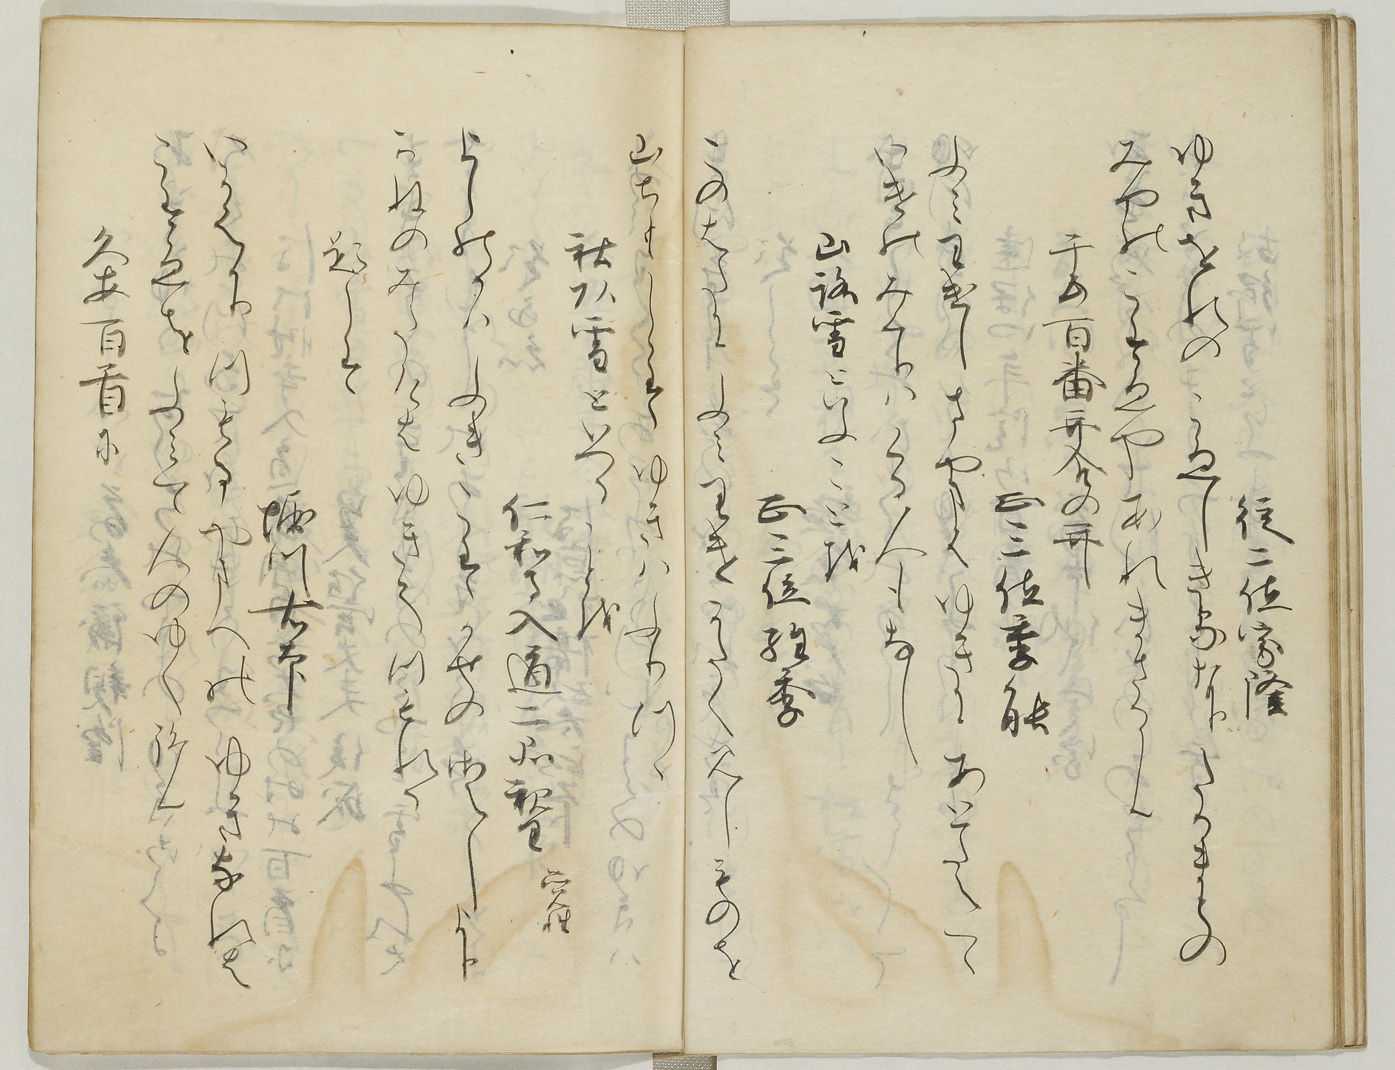 従二位家隆
ゆきをれのこゑしきるなりたかまとの
みやのこすゑやあれまさるらし
千五百番哥合の哥
正三位季能
ふみわけしさやまかゆきにあとたえて
いけのみくりはくる人もなし
山路雪といふことを
正三位経季
このさとにふみわけかたくみしものを
山ちもしらすゆきはふりつゝ
社頭雪といへることを
仁和寺入道二品親王
かねのみたけはゆきそつもれる
題しらす
堀川右大臣
いかはかりつもるやまへのゆきなれは
こすゑをふみて人のゆくらん
久安百首に